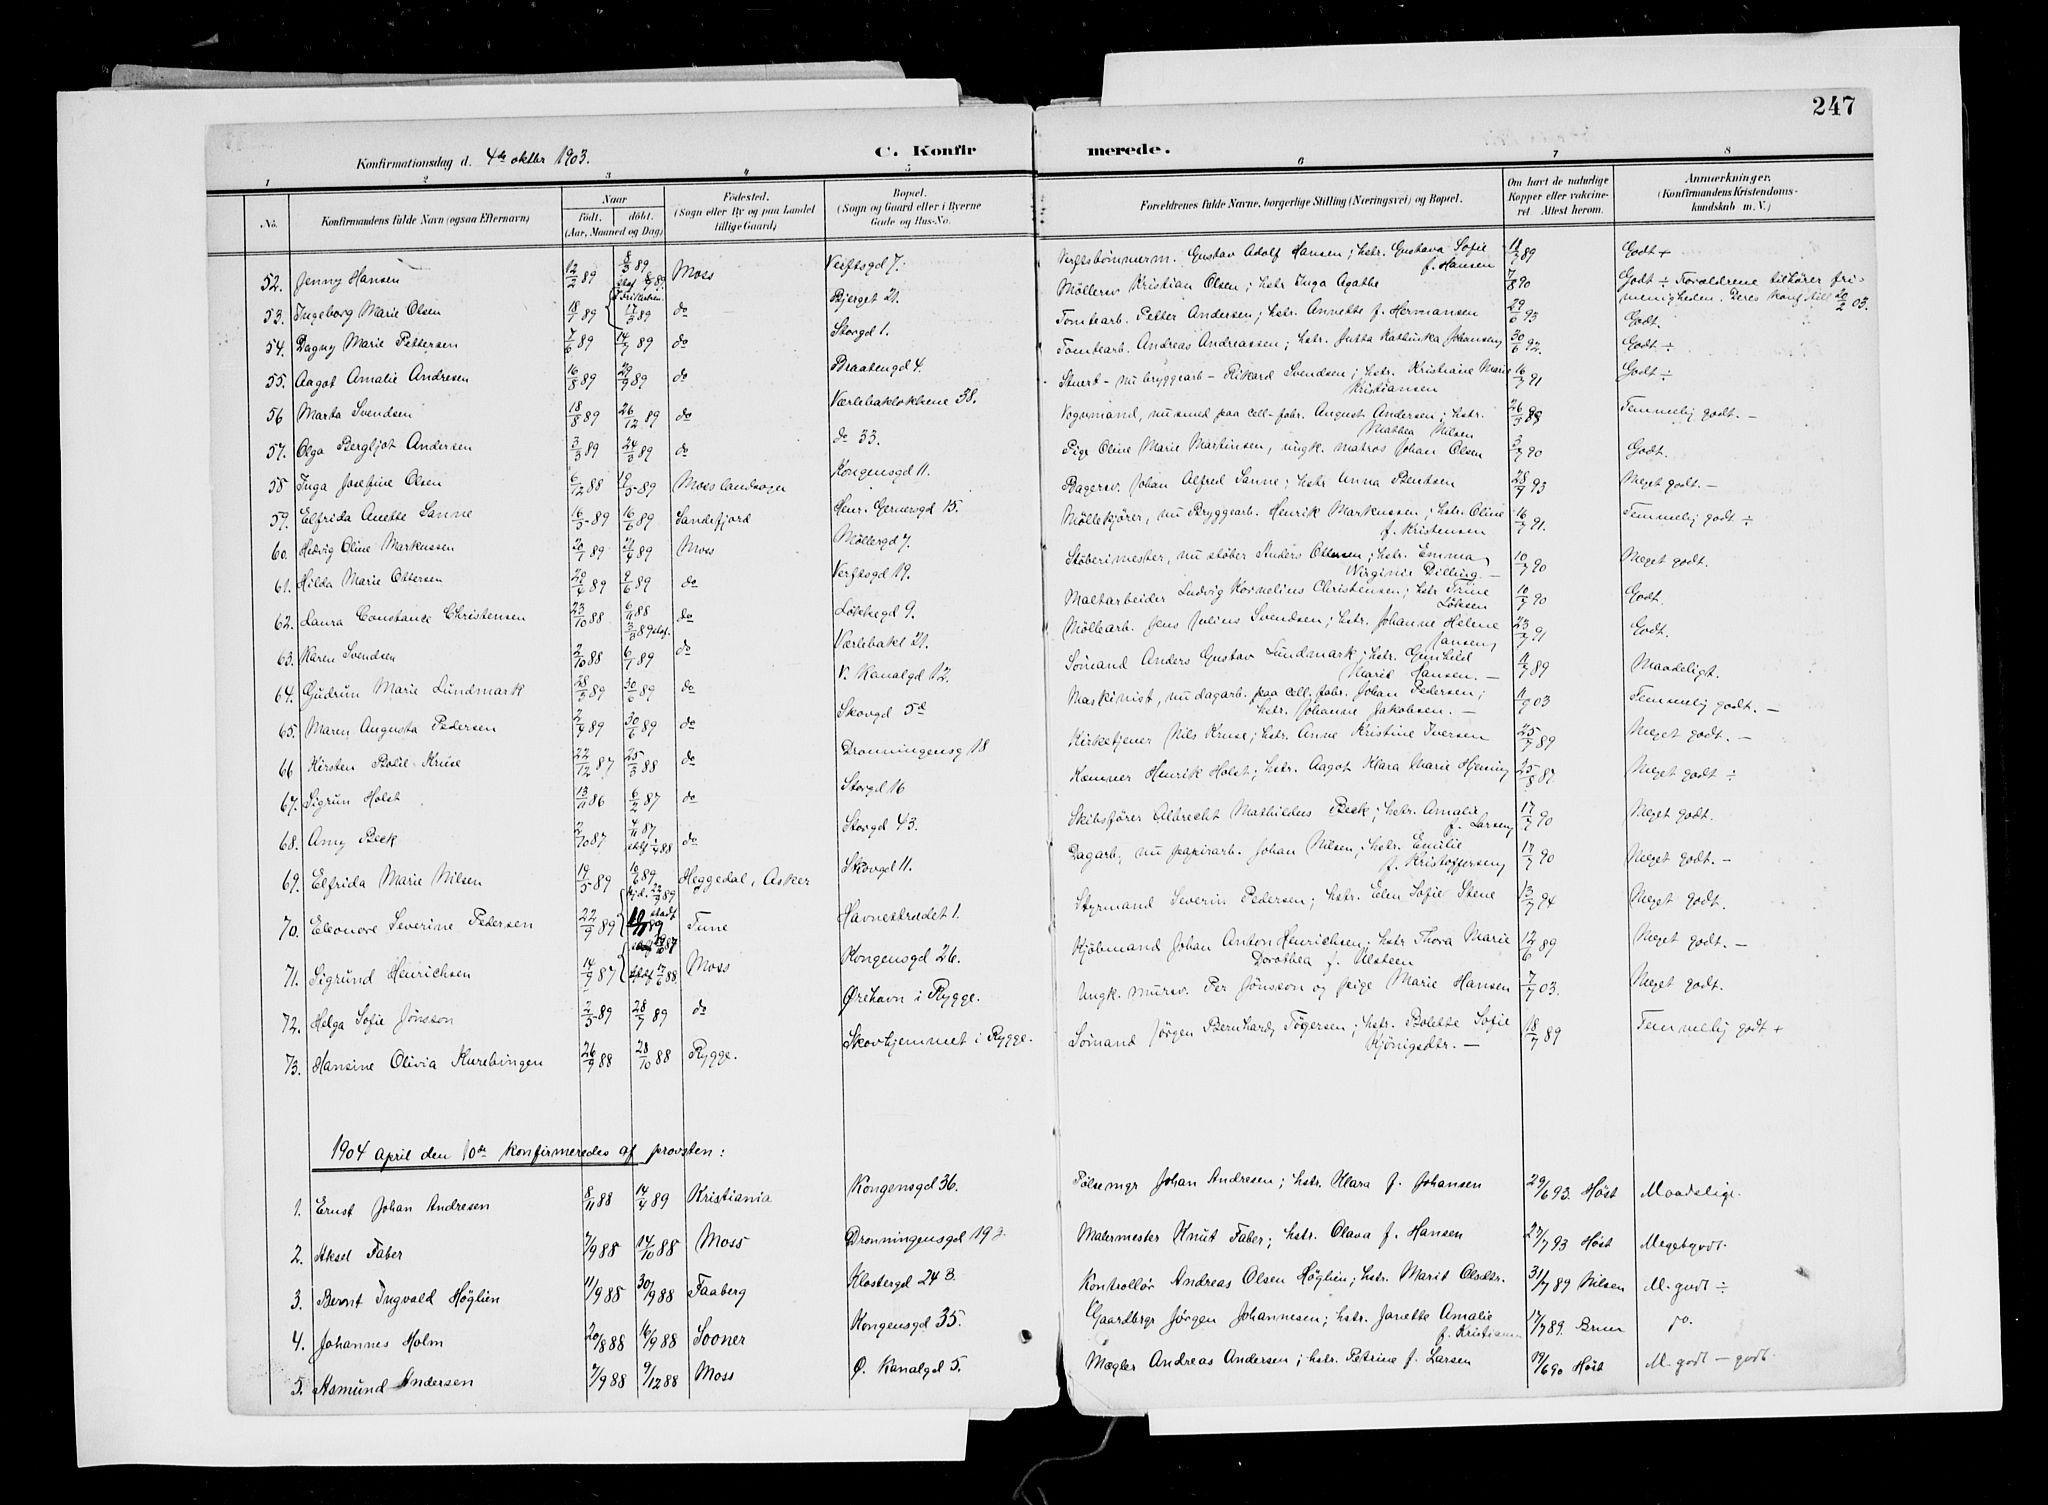 247
Konfirmationsdag d. 4de oktbr 1903.
C. Konfirmerede.
1 2 3 4 5 6 7 8
No. Konfirmandens fulde Navn (ogsaa Efternavn) Naar Født. døbt. (Aar, Maaned og Dag) Fødested. (Sogn eller By og paa Landet tillige Gaard) Bopæl. (Sogn og Gaard eller i Byerne Gade og Hus-No. Forældrenes fulde Navne, borgerlige Stilling (Næringsvei) og Bopæl. Om havt de naturlige Kopper eller vakcineret. Attest herom. Anmærkninger. (Konfirmandens Kristendomskundskab m. V.)
52. Jenny Hansen 12/2 89 Moss Verftsgd 7. Gustav Adolf Hansen; hstr. Gustava Sofie f. Hansen 11/7 89 Godt +
53. Ingeborg Marie Olsen 18/1 89 17/3 89 do Bjerget 21. Møllersv Kristian Olsen; hstr Inga Agathe 7/8 90 Godt ÷ Forældrene tilhører frimenigheden. Deres 20/2 03.
54. Dagny Marie Pettersen 7/6 89 14/7 89 do Storgd 1. Tomtearb. Petter Andersen; hstr. Annette f. Hermansen 29/6 93 Godt.
55. Aagot Amalie Andresen 16/8 89 29/9 89 do Braatengd 4. Tomtearb. Andreas Andreassen; hstr. Jutta Kathinka Johansen 30/6 92. Godt ÷
56 Marta Svendsen 18/8 89 26/12 89 do Værlebakløkkene 38. Stuert - nu bryggearb - Rikard Svendsen; hstr. Kristiane Marie Kristiansen 16/7 91 Godt ÷
57. Olga Bergljot Andersen 3/3 89 24/3 89 do do 33. Vognmand, nu smed paa cell-fabr. August Andersen; hstr. Mathea Nilsen Temmelig godt. -
58 Inga Josefine Olsen 6/12 88 19/5 89 Moss landsogn Kongensgd 11. Pige Oline Marie Martinsen, ungk. matros Johan Olsen 3/7 90 Godt.
59. Elfrida Anette Sanne 16/3 89 16/6 89 Sandefjord Henr. Gernersgd 15. Bagersv. Johan Alfred Sanne; hstr Anna Bentsen 28/7 93 Meget godt. -
60. Hedvig Oline Markussen 20/1 89 89 Moss Møllergd 7. Møllekjører, nu Bryggearb. Henrik Markussen; hstr. Oline f. Kristensen 16/7 91. Temmelig godt ÷
61. Hilda Marie Ottersen 89 9/6 89 do Verftsgd 19. Støberimester, nu støber Anders Ottersen; hstr. Emma Virginie Dilling - 10/7 90 Meget godt.
62. Laura Constance Christensen 23/10 88 6/11 88 do Løkkegd 9. Maltarbeider Ludvig Kornelius Christensen; hstr Trine Løksen 10/7 90 Godt.
63. Karen Svendsen 2/10 88 6/1 89 do Værlebakl 21. Møllearb. Jens Julius Svendsen; hstr. Johanne Helene Jansen 23/7 91 Godt.
64. Gudrun Marie Lundmark 28/3 89 30/6 89 do V. Kanalgd 12. Sømand Anders Gustav Lundmark; hstr. Gunhild Marie Hansen. - 11/7 89 Maadeligt.
65. Maren Augusta Pedersen 2/4 89 30/6 89 do Skovgd 5d Maskinist, nu dagarb. paa cell. fabr. Johan Pedersen; hstr. Johanne Jakobsen. - 03 Temmelig godt. -
66 Kirsten Bolil Kruse 22/12 87 25/3 88 do Dronningensg 18 Kirketjener Nils Kruse; hstr. Anne Kristine Iversen 25/7 89 Meget godt. -
67. Sigrun Holst 13/11 86 6/2 87 do Storgd 16 Kæmner Henrik Holst; hstr. Aagot Klara Marie 25/8 87 Meget godt ÷
68. Amy Beck 2/10 87 4/11 87 do Storgd 43. Skibsfører Albrecht Mathildus Beck; hstr. Amalie f. Larsen 17/7 90 Meget godt.
69. Elfrida Marie Nilsen 19/5 89 16/6 89 Heggedal, Asker Skovgd 11. Dagarb, nu papirarb. Johan Nilsen; hstr. Emilie f. Kristoffersen 17/7 90 Meget godt. -
70. Eleonore Severine Pedersen 22/9 89 Tune Havnestrædet 1. Styrmand Severin Pedersen; hstr. Elen Sofie Stene 13/7 94 Meget godt.
71. Sigrund Henrichsen 14/9 87 Moss Kongensgd 26. Kjøbmand Johan Anton Henrichsen; hstr Thora Marie Dorothea f. Ulsteen 12/6 89 Meget godt. -
72. Helga Sofie Jönsson 2/5 89 28/7 89 do Ørehavn i Rygge. Ungk. mursv. Per Jönsson og pige Marie Hansen 7/7 03. Meget godt.
73. Hansine Olivia 26/9 88 28/10 88 Rygge. Skovhjemmet i Rygge. Sømand Jørgen Bernhard Tögersen; hstr. Bolette Sofie Kjönigsdtr. - 18/7 89 Temmelig godt +
1904 April den 10de konfirmeredes af provsten:
1. Ernst Johan Andresen 8/11 88 14/4 89 Kristiania Kongensgd 36. Pølsemgr Johan Andresen; hstr. Klara f. Johansen 29/6 93. Høst Maadelige.
2. Aksel Faber 7/9 88 14/10 88 Moss Dronningensgd 19 Malermester Knut Faber; hstr. Olava f. Hansen 27/7 93 Høst Meget godt.
3. Bernt Ingvald Höglien 11/9 88 30/9 88 Faaberg Klostergd 24 B. Kontrollør Andreas Olsen Höglien; hstr. Marit Olsdtr. 31/7 89 Nilsen M. godt ÷
4. Johannes Holm 20/8 88 16/9 88 Sooner Kongensgd 35. Gaardbrgr Jørgen Johannesen; hstr. Janette Amalie f. Kristiansen 17/7 89. Bruun do.
5. Asmund Andersen 7/9 88 9/12 88 Moss Ø. Kanalgd 5. Mægler Andreas Andersen; hstr. Petrine f. Larsen 19/6 90 Høst M. godt - godt.